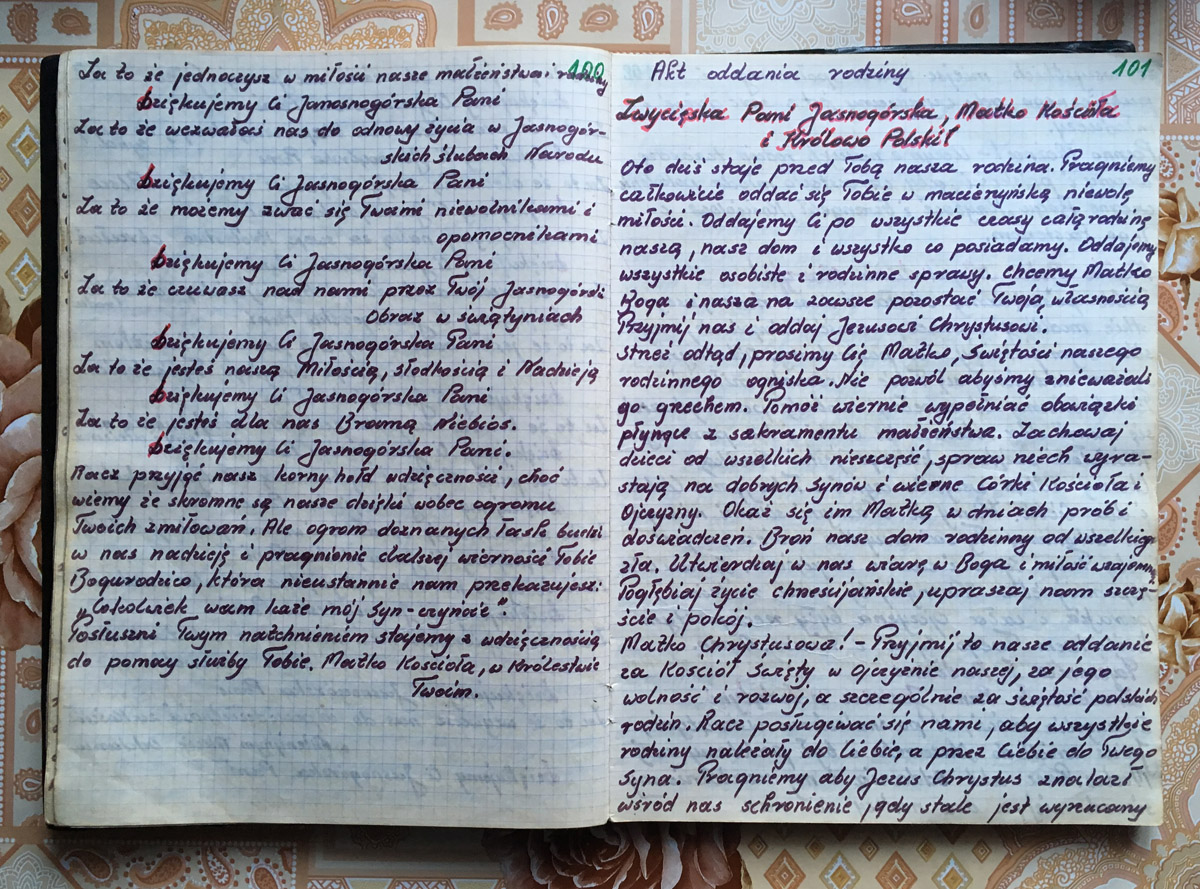 100
Za to że jednoczysz w miłości nasze małżeństwa i rodziny
Dziękujemy Ci Janosnogórska Pani
Za to że wezwałaś nas do odnowy życia w Jasnogór-
skich ślubach Narodu
Dziękujemy Ci Jasnogórska Pani
Za to że możemy zwać się Twoimi niewolnikami i
opomocnikami
Dziękujemy Ci Jasnogórska Pani
Za to że czuwasz nad nami przez Twój Jasnogórski
Obraz w świątyniach
Dziękujemy Ci Jasnogórska Pani
Za to że jesteś naszą Miłością, słodkością i Nadzieją
Dziękujemy Ci Jasnogórska Pani
Za to że jesteś dla nas Bramą Niebios.
Dziękujemy Ci Jasnogórska Pani.
Racz przyjąć nasz korny hołd wdzięczności, choć
wiemy że skromne są nasze dzięki wobec ogromu
Twoich zmiłowań. Ale ogrom doznanych łask budzi
w nas nadzieję i pragnienie dalszej wierności Tobie
Bogurodzico, która nieustannie nam przekazujesz:
„Cokolwiek wam każe mój syn-czyńcie".
Posłuszni Twym natchnieniem stajemy z wdzięcznością
do pomocy służby Tobie. Matko Kościoła, w Królestwie
Twoim.
Akt oddania rodziny 101
Zwycięska Pani Jasnogórska, Matko Kościoła
i Królowo Polski!
Oto dziś staje przed Tobą nasza rodzina. Pragniemy
całkowicie oddać się Tobie w macierzyńską niewolę
miłości. Oddajemy Ci po wszystkie czasy całą rodzinę
naszą, nasz dom i wszystko co posiadamy. Oddajemy
wszystkie osobiste i rodzinne sprawy. Chcemy Matko
Boga i nasza na zawsze pozostać Twoją własnością
Przyjmij nas i oddaj Jezusowi Chrystusowi.
Strzeż odtąd, prosimy Cię Matko, Świętości naszego
rodzinnego ogniska. Nie pozwól abyśmy znieważali
go grzechem. Pomóż wiernie wypełniać obowiązki
płynące z sakramentu małżeństwa. Zachowaj
dzieci od wszelkich nieszczęść, spraw niech wyra-
stają na dobrych Synów i wierne Córki Kościoła i
Ojczyzny. Okaż się im Matką w dniach prób i
doświadczeń. Broń nasz dom rodzinny od wszelkiego
zła. Utwierdzaj w nas wiarę w Boga i miłość wzajemną
Pogłębiaj życie chrześcijańskie, upraszaj nam szczę-
ście i pokój.
Matko Chrystusowa! - Przyjmij to nasze oddanie
za Kościół Święty w Ojczyźnie naszej, za jego
wolność i rozwój, a szczególnie za świętość polskich
rodzin. Racz posługiwać się nami, aby wszystkie
rodziny należały do Ciebie, a przez Ciebie do Twego
Syna. Pragniemy aby Jezus Chrystus znalazł
wśród nas schronienie, gdy stale jest wyrzucany